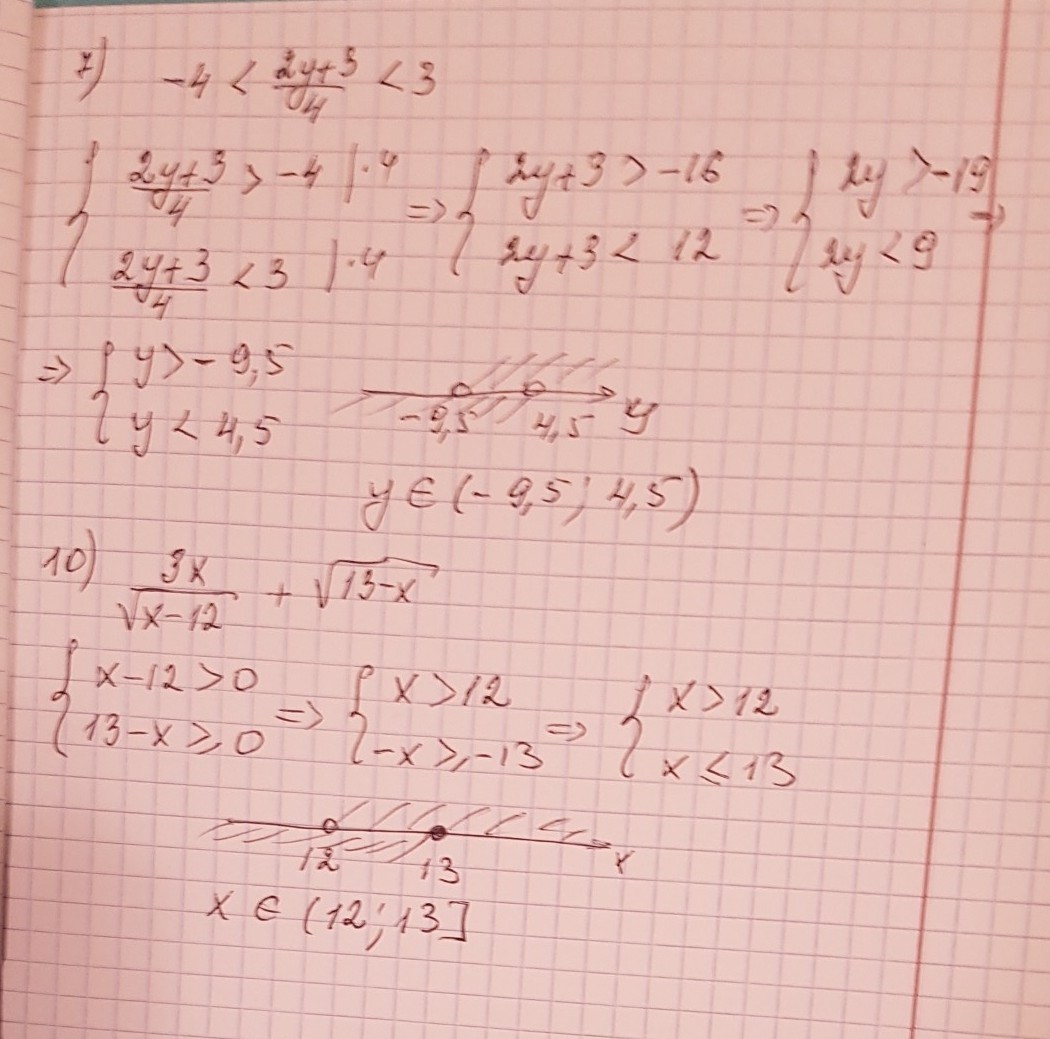 7) -4 < (2y+3)/4 < 3
{ (2y+3)/4 > -4 |·4 ⇒ { 2y+3 > -16 ⇒ { 2y > -19 ⇒
{ (2y+3)/4 < 3 |·4 { 2y+3 < 12 { 2y < 9
⇒ { y > -9,5
{ y < 4,5 -9,5 4,5 y
y ∈ (-9,5; 4,5)
10) 3x/√(x-12) + √(13-x)
{ x-12 > 0 ⇒ { x > 12 ⇒ { x > 12
{ 13-x ≥ 0 { -x ≥ -13 { x ≤ 13
12 13 x
x ∈ (12; 13]